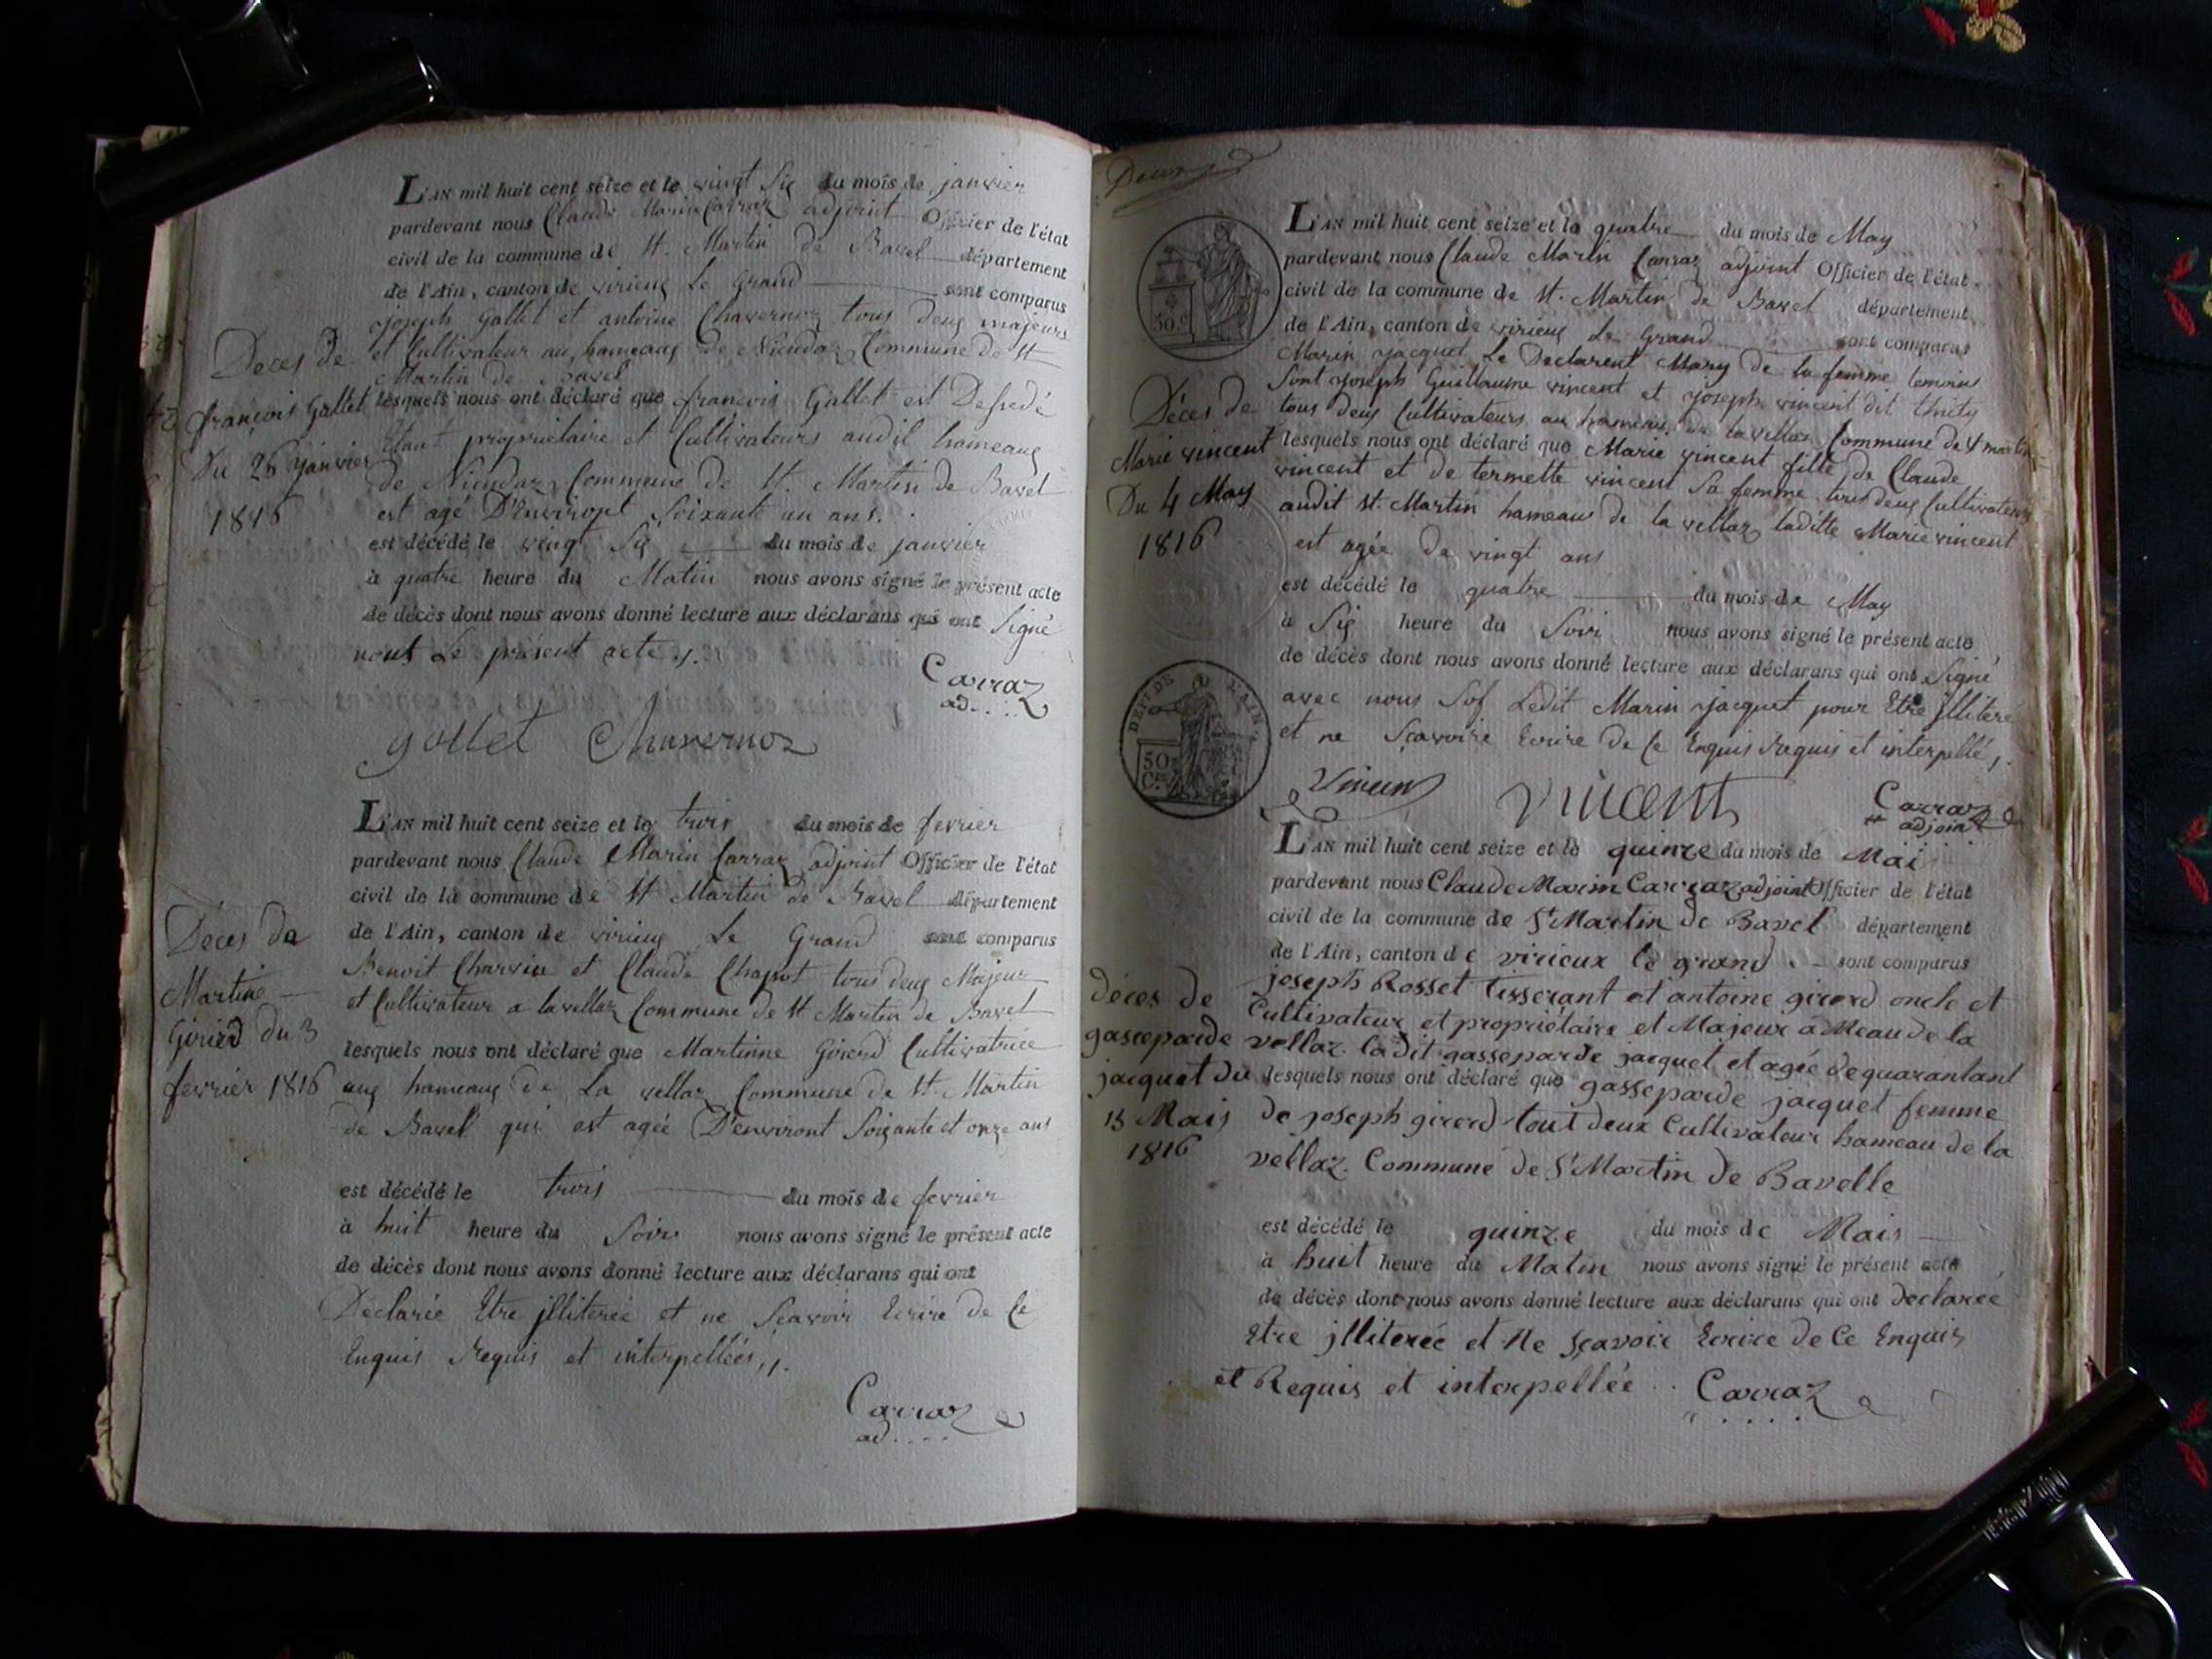 L'AN mil huit cent seize et le vingt Six du mois de janvier
pardevant nous Claude Marin Carraz adjoint Officier de l'état
civil de la commune de St. Martin de Bavel département
de l'Ain, canton de virieux Le Grand sont comparus
joseph Gallet et antoine Chavernoz tous deux majeurs
et Cultivateur au hameaux de Commune de St
Martin de Bavel
lesquels nous ont déclaré que françois Gallet est
Etant propriétaire et Cultivateurs audit hameaux
de Commune de St. Martin de Bavel
est agé Soixante un ans.
est décédé le vingt Six du mois de janvier
à quatre heure du Matin nous avons signé le présent acte
de décès dont nous avons donné lecture aux déclarans qui ont Signé
nous Le présent acte
Carraz
ad....
gollet Chavernoz
Déces de
françois Gallet
Du 26 janvier
1816
L'AN mil huit cent seize et le trois du mois de fevrier
pardevant nous Claude Marin Carraz adjoint Officier de l'état
civil de la commune de St Martin de Bavel département
de l'Ain, canton de virieux Le Grand sont comparus
Benoit Charvin et Claude Chapot tous deux Majeur
et Cultivateur a lavellaz Commune de St Martin de Bavel
lesquels nous ont déclaré que Martinne Girerd Cultivatrice
aux hameaux de La vellaz Commune de St. Martin
de Bavel qui est agée D'environt Soixante et onze ans
est décédé le trois du mois de fevrier
à huit heure du Soir nous avons signé le présent acte
de décès dont nous avons donné lecture aux déclarans qui ont
Déclarée Etre jlliterée et ne Sçavoir Ecrire de Ce
Enquis Requis et interpellées,
Carraz
ad....
Déces de
Martine
Girerd du 3
fevrier 1816
Deux
50.c
L'AN mil huit cent seize et le quatre du mois de May
pardevant nous Claude Marin Carraz adjoint Officier de l'état
civil de la commune de St. Martin de Bavel département
de l'Ain, canton de virieux Le Grand sont comparus
Marin jacquet Le Declarent Mary de la femme temoins
Sont joseph Guillaume vincent et joseph vincent dit
tous deux Cultivateurs au hameau de lavellaz Commune de St martin
lesquels nous ont déclaré que Marie vincent fille de Claude
vincent et de termette vincent Sa femme tous deux Cultivateurs
audit St. Martin hameau de la vellaz laditte Marie vincent
est agée de vingt ans
est décédé le quatre du mois de May
à Six heure du Soir nous avons signé le présent acte
de décès dont nous avons donné lecture aux déclarans qui ont Signé
avec nous Sof Ledit Marin jacquet pour Etre jlliteré
et ne Sçavoire Ecrire de Ce Enquis Requis et interpellé,
Vincent vincent Carraz
adjoin
Déces de
Marie vincent
Du 4 May
1816
DEPT DE L'AIN.
50
C.
L'AN mil huit cent seize et le quinze du mois de Mai
pardevant nous Claude Marin Carraz adjoint Officier de l'état
civil de la commune de St Martin de Bavel département
de l'Ain, canton de virieux le grand sont comparus
joseph Rosset tisserant et antoine girerd oncle et
Cultivateur et propriétaire et Majeur à Meau de la
vellaz. la dit gasseparde jacquet et agée de quarantant
lesquels nous ont déclaré que gasseparde jacquet femme
de joseph girerd tout deux Cultivateur hameau de la
vellaz. Commune de St Martin de Bavelle
est décédé le quinze du mois de Mais
à huit heure du Matin nous avons signé le présent acte
de décès dont nous avons donné lecture aux déclarans qui ont declarée
Etre jlliterée et Ne sçavoir Ecrire de Ce Enquis
et Requis et interpellée .. Carraz
déces de
gasseparde
jacquet du
15 Mais
1816